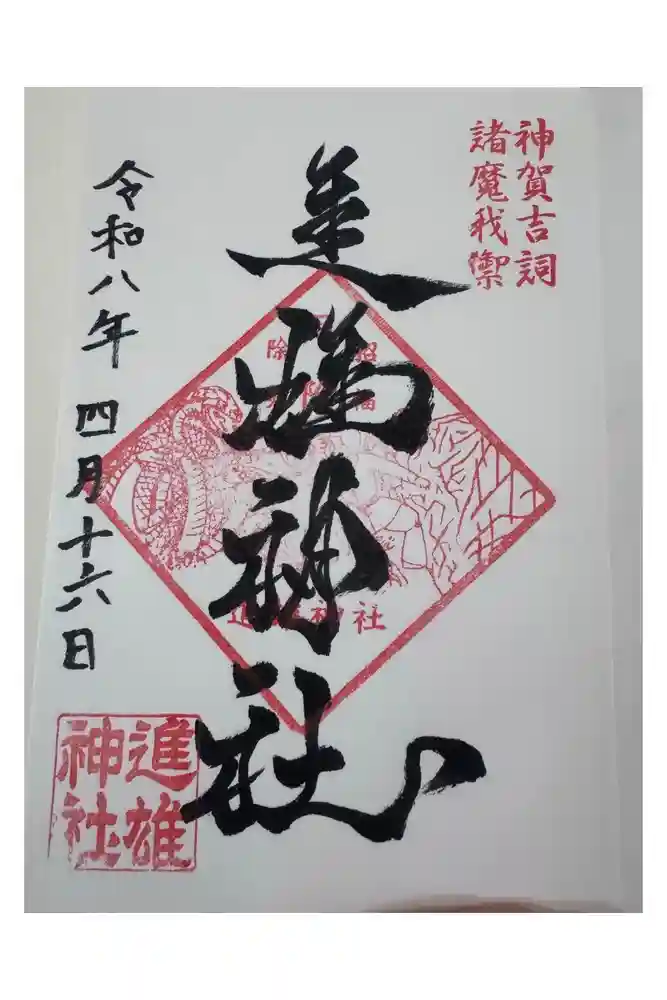 神賀吉詞
諸魔我禦
進雄神社
進雄神社
令和八年 四月十六日
進雄
神社